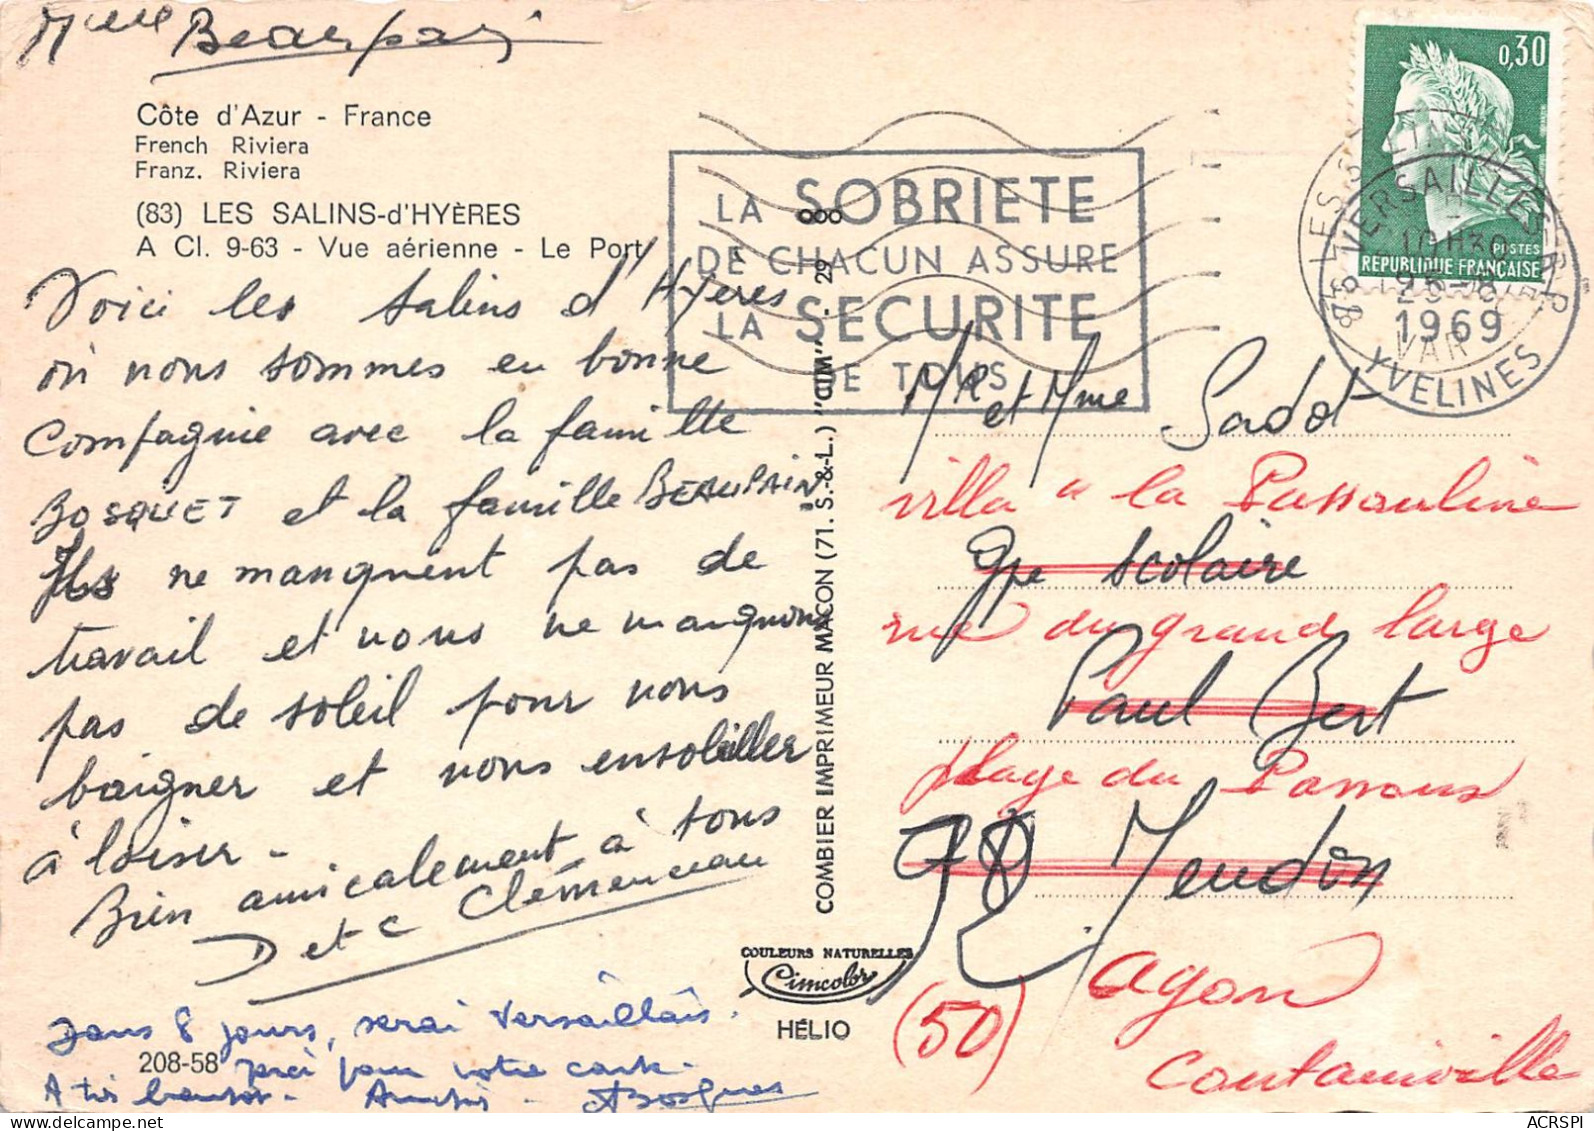 Mlle Beaupain
Côte d'Azur - France
French Riviera
Franz. Riviera
(83) LES SALINS-d'HYÈRES
A Cl. 9-63 - Vue aérienne - Le Port
Voici les Salins d'Hyères
où nous sommes en bonne
compagnie avec la famille
BOSQUET et la famille BEAUPAIN
Ils ne manquent pas de
travail et nous ne manquons
pas de soleil pour nous
baigner et nous ensoleiller
à loisir -
Bien amicalement à tous
D et C Clémenceau
Dans 8 jours, serai Versaillais.
208-58
merci pour votre carte.
A très bientôt - Amitiés -
COMBIER IMPRIMEUR MACON (71. S.-&-L.) "CIM" . 29
COULEURS NATURELLES
Cimcolor
HÉLIO
LA SOBRIETE
DE CHACUN ASSURE
LA SECURITE
DE TOUS
0,30
POSTES
REPUBLIQUE FRANÇAISE
VERSAILLES
10H30
1969
YVELINES
83 LES SALINS
VAR
Mr et Mme Sadot
villa "la Passouline
Gpe Scolaire
rue du grand large
Paul Bert
plage du Passous
78 Meudon
Agon
(50) Coutainville
ACRSPI